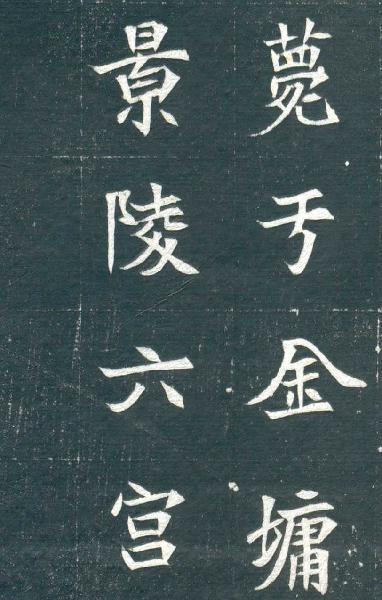 薨亐金墉
景陵六宫